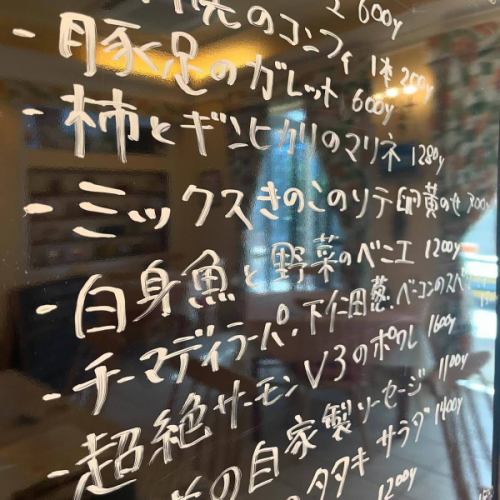 600y
のコンフィ 1本 200y
- 豚足のガレット 600y
- 柿とギンヒカリのマリネ 1280y
- ミックスきのこのソテ 卵黄のせ 300
- 白身魚と野菜のベニエ 1200y
- チーマディラーパ・下仁田葱・ベーコンのスペ
- 超絶サーモンV3のポワレ 1600y
の自家製ソーセージ 1100y
のタタキ サラダ 1400y
1200y